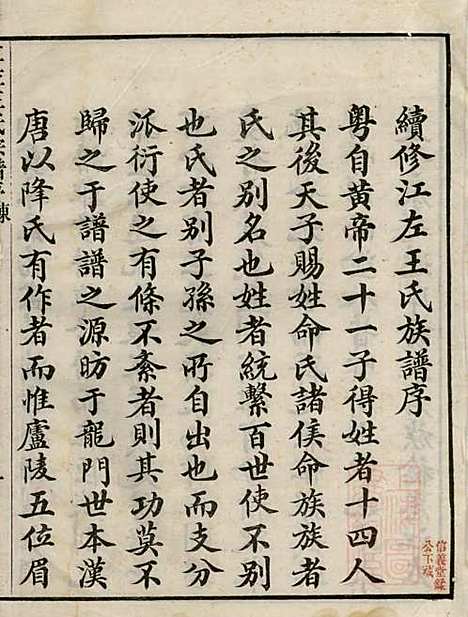 續修江左王氏族譜序
粤自黃帝二十一子得姓者十四人
其後天子賜姓命氏諸侯命族族者
氏之別名也姓者統繫百世使不別
也氏者別子孫之所自出也而支分
派衍使之有條不紊者則其功莫不
歸之于譜譜之源昉于龍門世本漢
唐以降氏有作者而惟廬陵五位眉